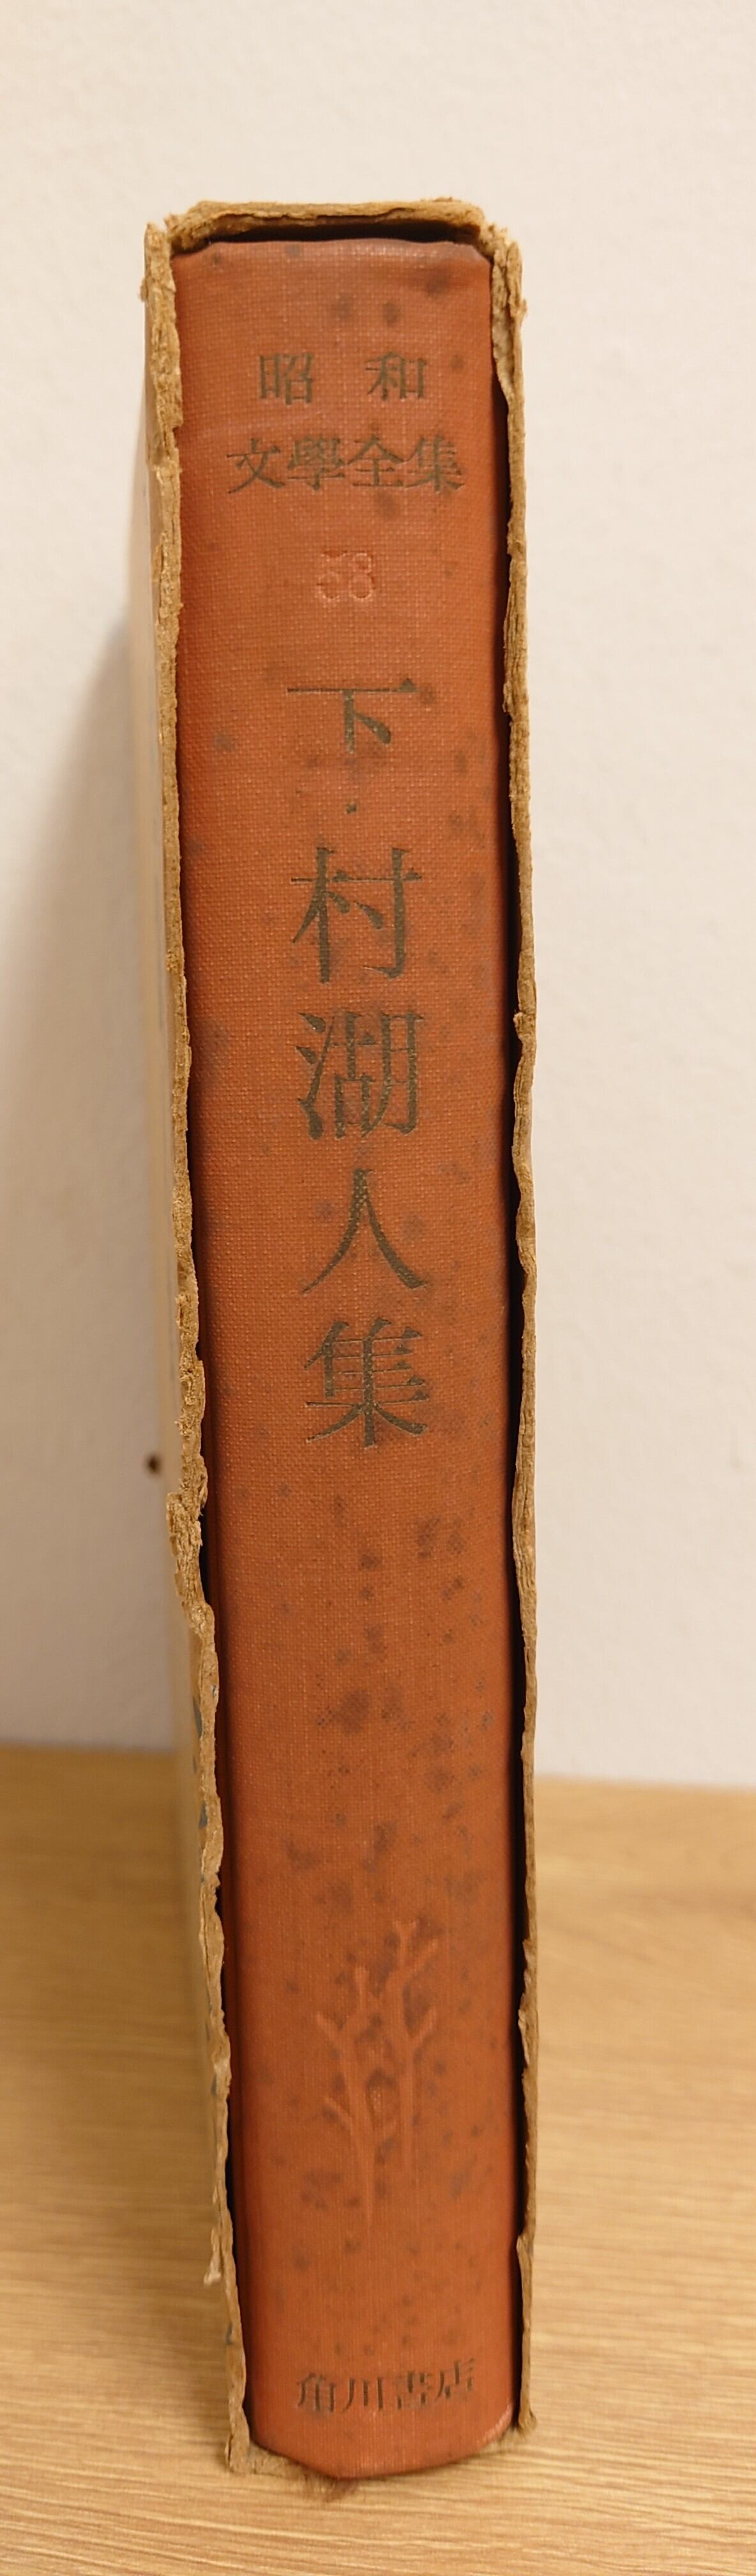 昭和
文學全集
58
下村湖人集
角川書店